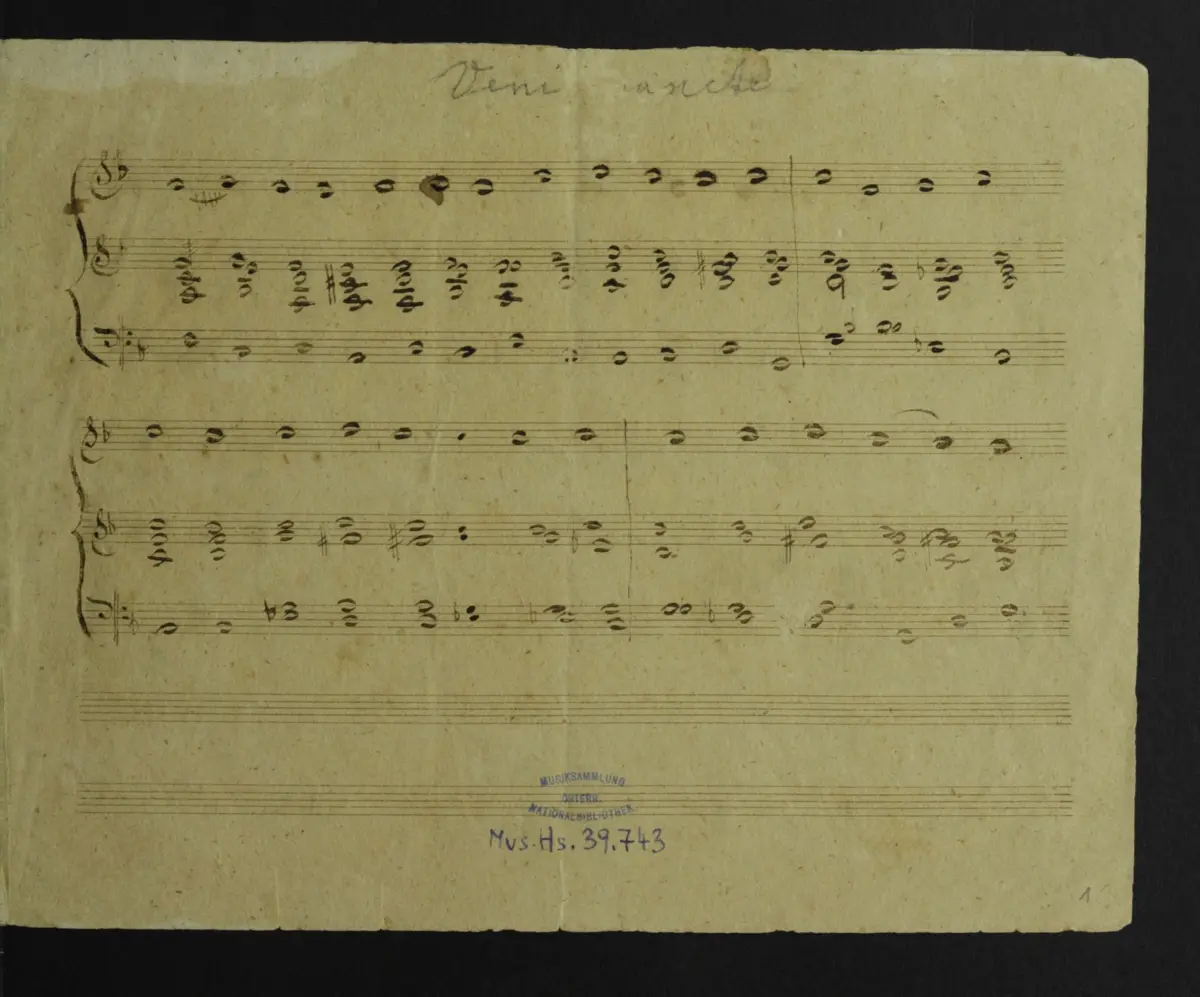 Veni sancte
MUSIKSAMMLUNG
ÖSTERR.
NATIONALBIBLIOTHEK
Mus. Hs. 39.743
1